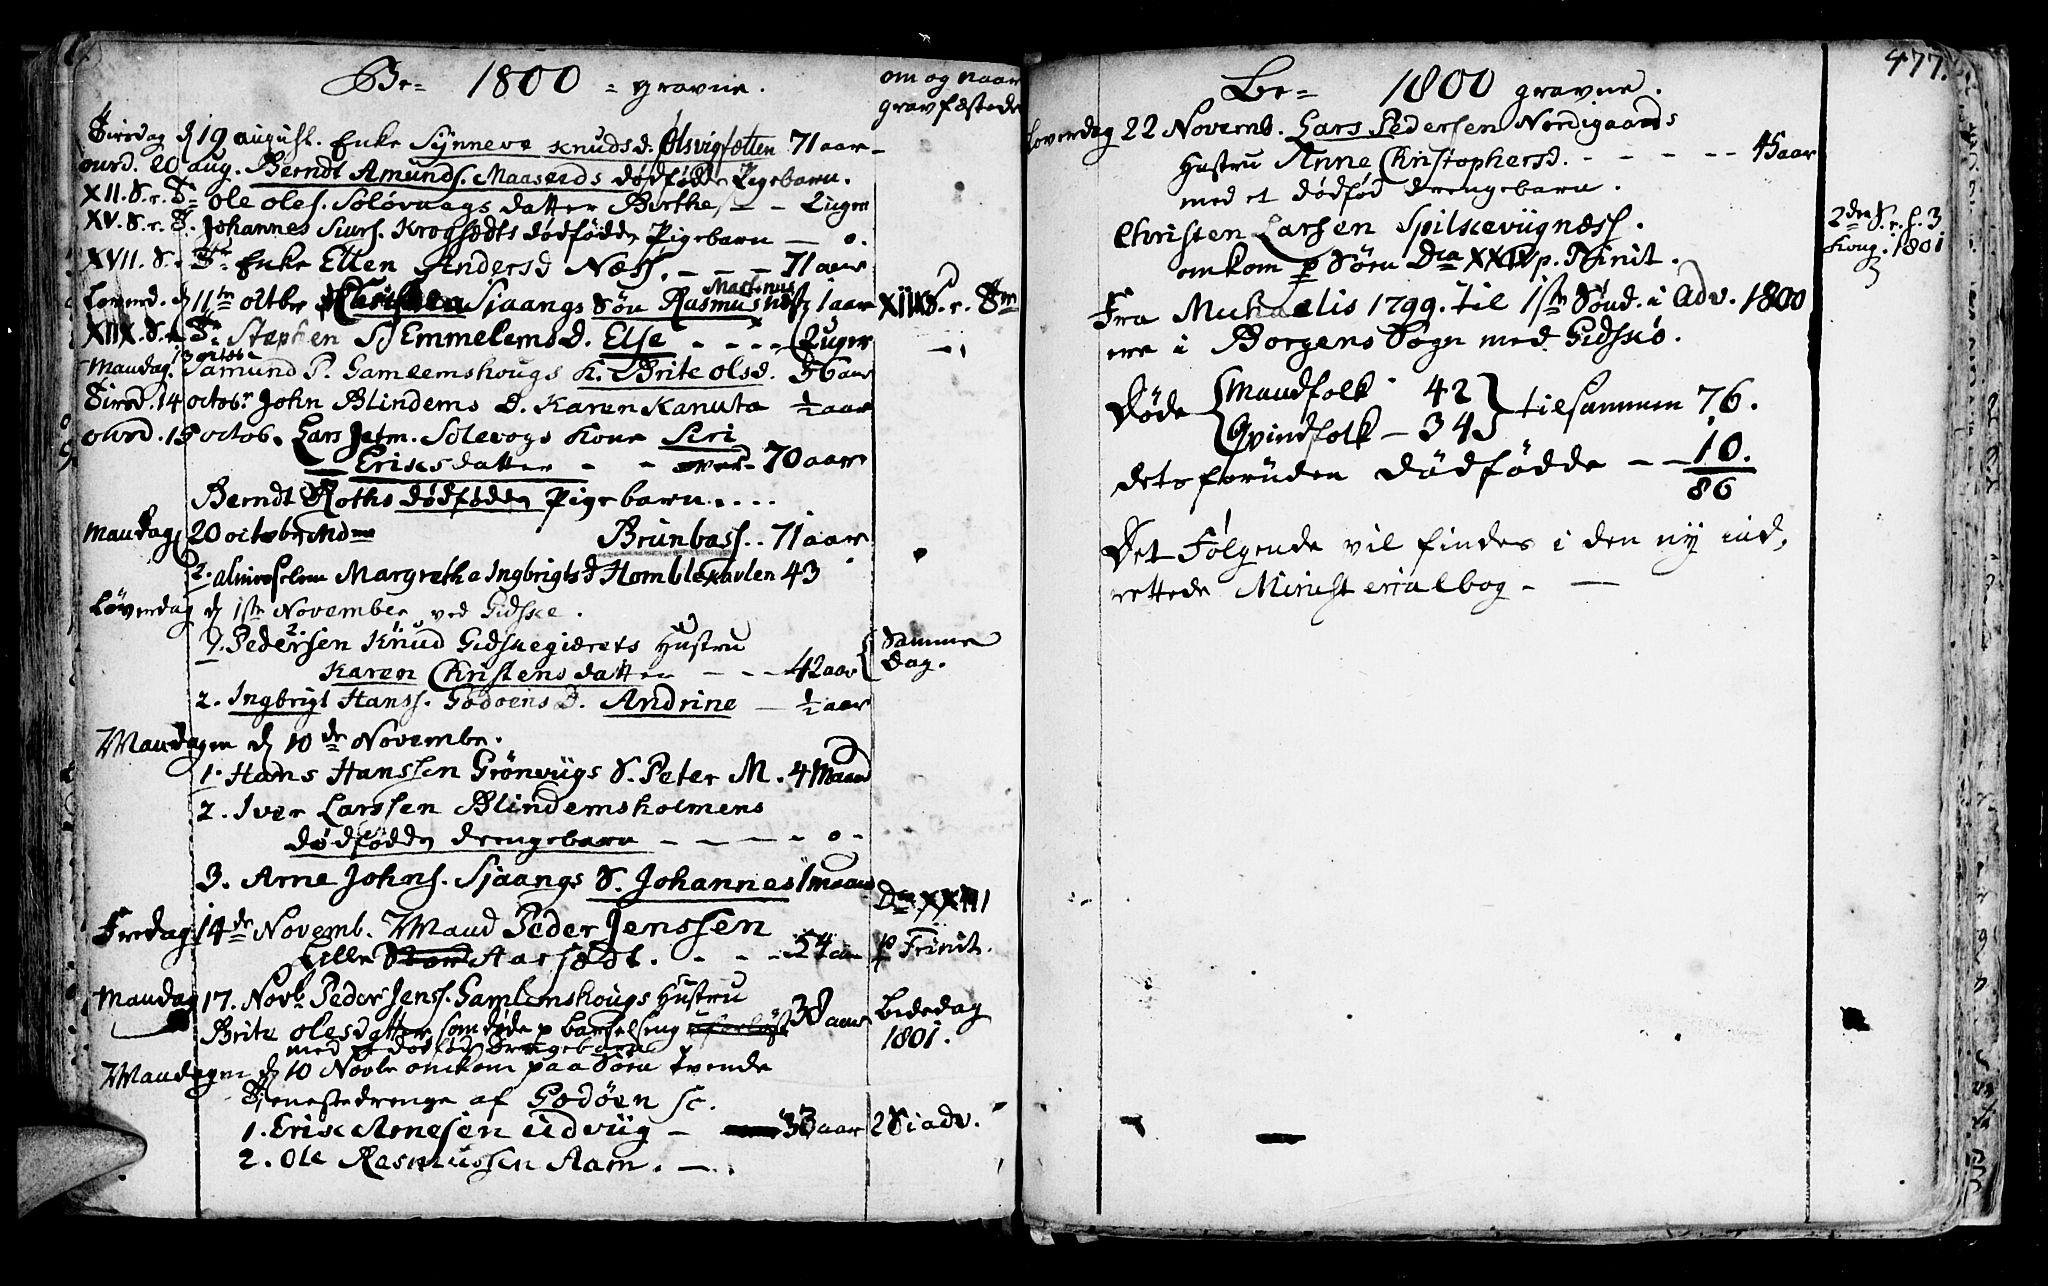 Be= 1800 =gravne.
om og naar
gravfæstede
Tirsdag d 19 august. Enke Synneve Knudsd. Olsvigsætten 71 aar
onsd. 20 aug. Berndt Amunds. Maaseids dødfødde Pigebarn.
XII. S. e. T. Ole Oles. Soløvaags datter Birthe 2 uger
XV. S. e. T. Johannes Siurs. Krogsedts dødfødde Pigebarn — 0.
XVII. S. e. Tr. Enke Ellen Andersd Næss. - - - 71 aar
Løverd. d 11te octbr Sjaangs Søn Rasmus Martinus 1 aar
XIIX. S. e. Tr. Stephen Emmelems D. Else - - - 2 uger
Mandag 13 octob. Samund P. Gamlemshougs K. Brite olsd. 56 aar
Tirsd. 14 octobr John Blindems D. Karen Kanuta ½ aar
onsd. 15 octob. Lars Jetm. Solevogs Kone Siri
Eriks datter - - over 70 aar
Berndt Roths dødfødde Pigebarn. . . .
Mandag 20 octobr Md Brunbass. . 71 aar
2. almisselem Margrethe Ingbrigtsd Homblehavlen 43
Løverdag d 1ste November ved Gidske.
1. Pedersen Knud Gidskegierets Hustru
Karen Christensdatter - - - 42 aar
Samme
Dag.
2. Ingbrigt Hanss. Godøens D. Andrine — ½ aar
Mandagen d 10de Novembr.
1. Hans Hanssen Grönvügs S. Peter M. 4 Maan
2. Iver Larssen Blindemsholmens
dødfødde drengebarn - - - - - 0 -
3. Arne Johns. Sjaangs S. Johannes 1 maan
Fredag 14de Novemb. Mand Peder Jenssen
Lille Aarsædt. - - - 54 aar
Dca XXIII
p Trinit.
Mandag 17. Novb. Peder Jens. Gamlemshougs Hustru
Brite olesdatter som døde p barselseng 38 aar
med et dødfød drengebarn
Bededag
1801.
Mandagen d 10 Novbr omkom paa Søen tvende
Tienestedrenge af Godøen sc.
1. Erik Arnesen Udvüg - 33 aar
2 S i adv.
2. Ole Rasmussen Aam. -
477.
Be= 1800 gravne.
Løverdag 22 Novemb. Lars Pedersen Nordigaards
Hustru Anne Christophersd. - - - - - 45 aar
med et dødfød drengebarn.
Christen Larsen Spilkevügness.
omkom p Søen Dca XXIV p. Trinit.
2den S. e. h. 3
Kong. 1801
Fra Michaelis 1799 til 1ste Sønd. i Adv. 1800
ere i Borgens Sogn med Gidskø.
Døde { Mandfolk - 42
Qvindfolk - 34 } tilsammen 76.
detsforuden dødfødde - - 10.
86
Det Følgende vil findes i den ny ind,
rettede Ministerialbog. -